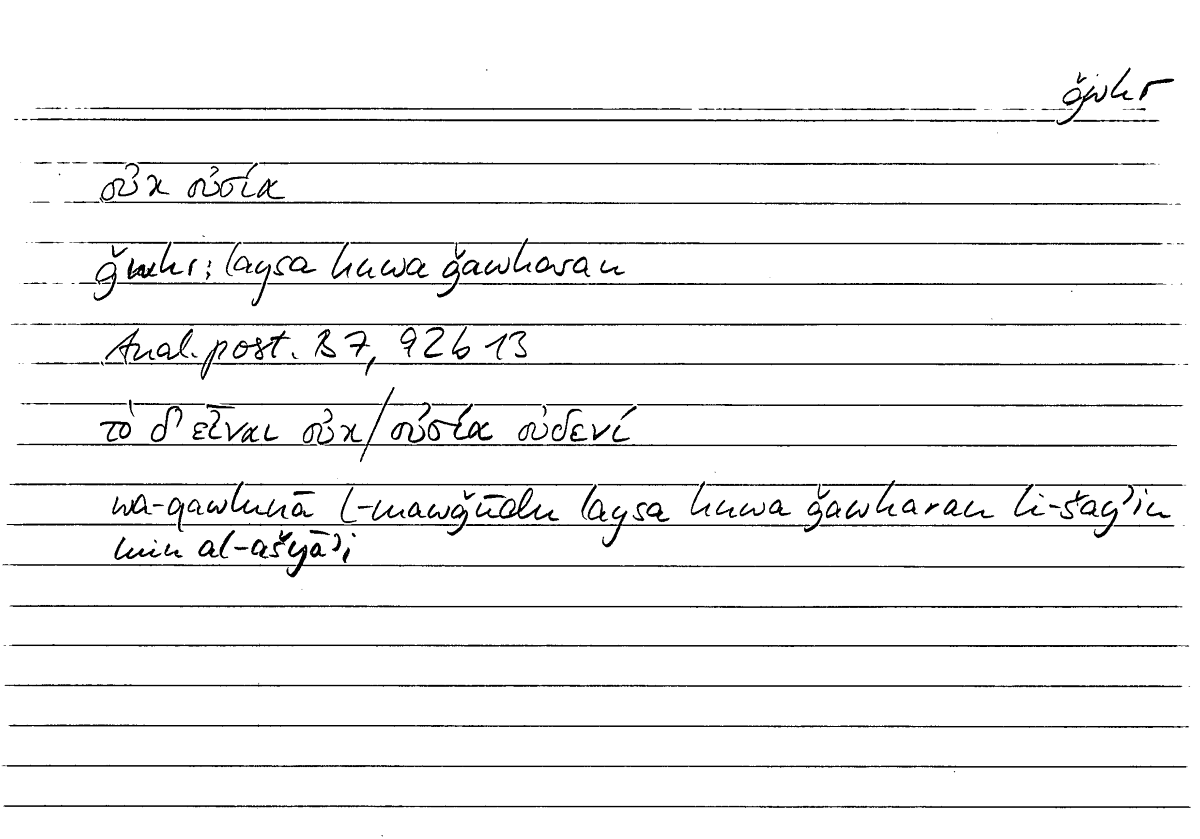 ǧwhr
οὐκ οὐσία
ǧwhr; laysa huwa ǧawharan
Anal. post. B 7, 92b 13
τὸ δ' εἶναι οὐκ/οὐσία οὐδενί
wa-qawlunā l-mawǧūdu laysa huwa ǧawharan li-šayʾin
min al-ašyāʾi